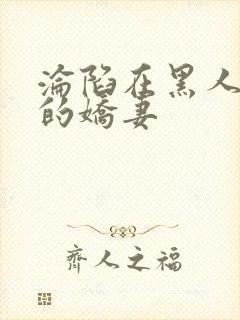 淪陷在黑人
的嬌妻
齊人之福